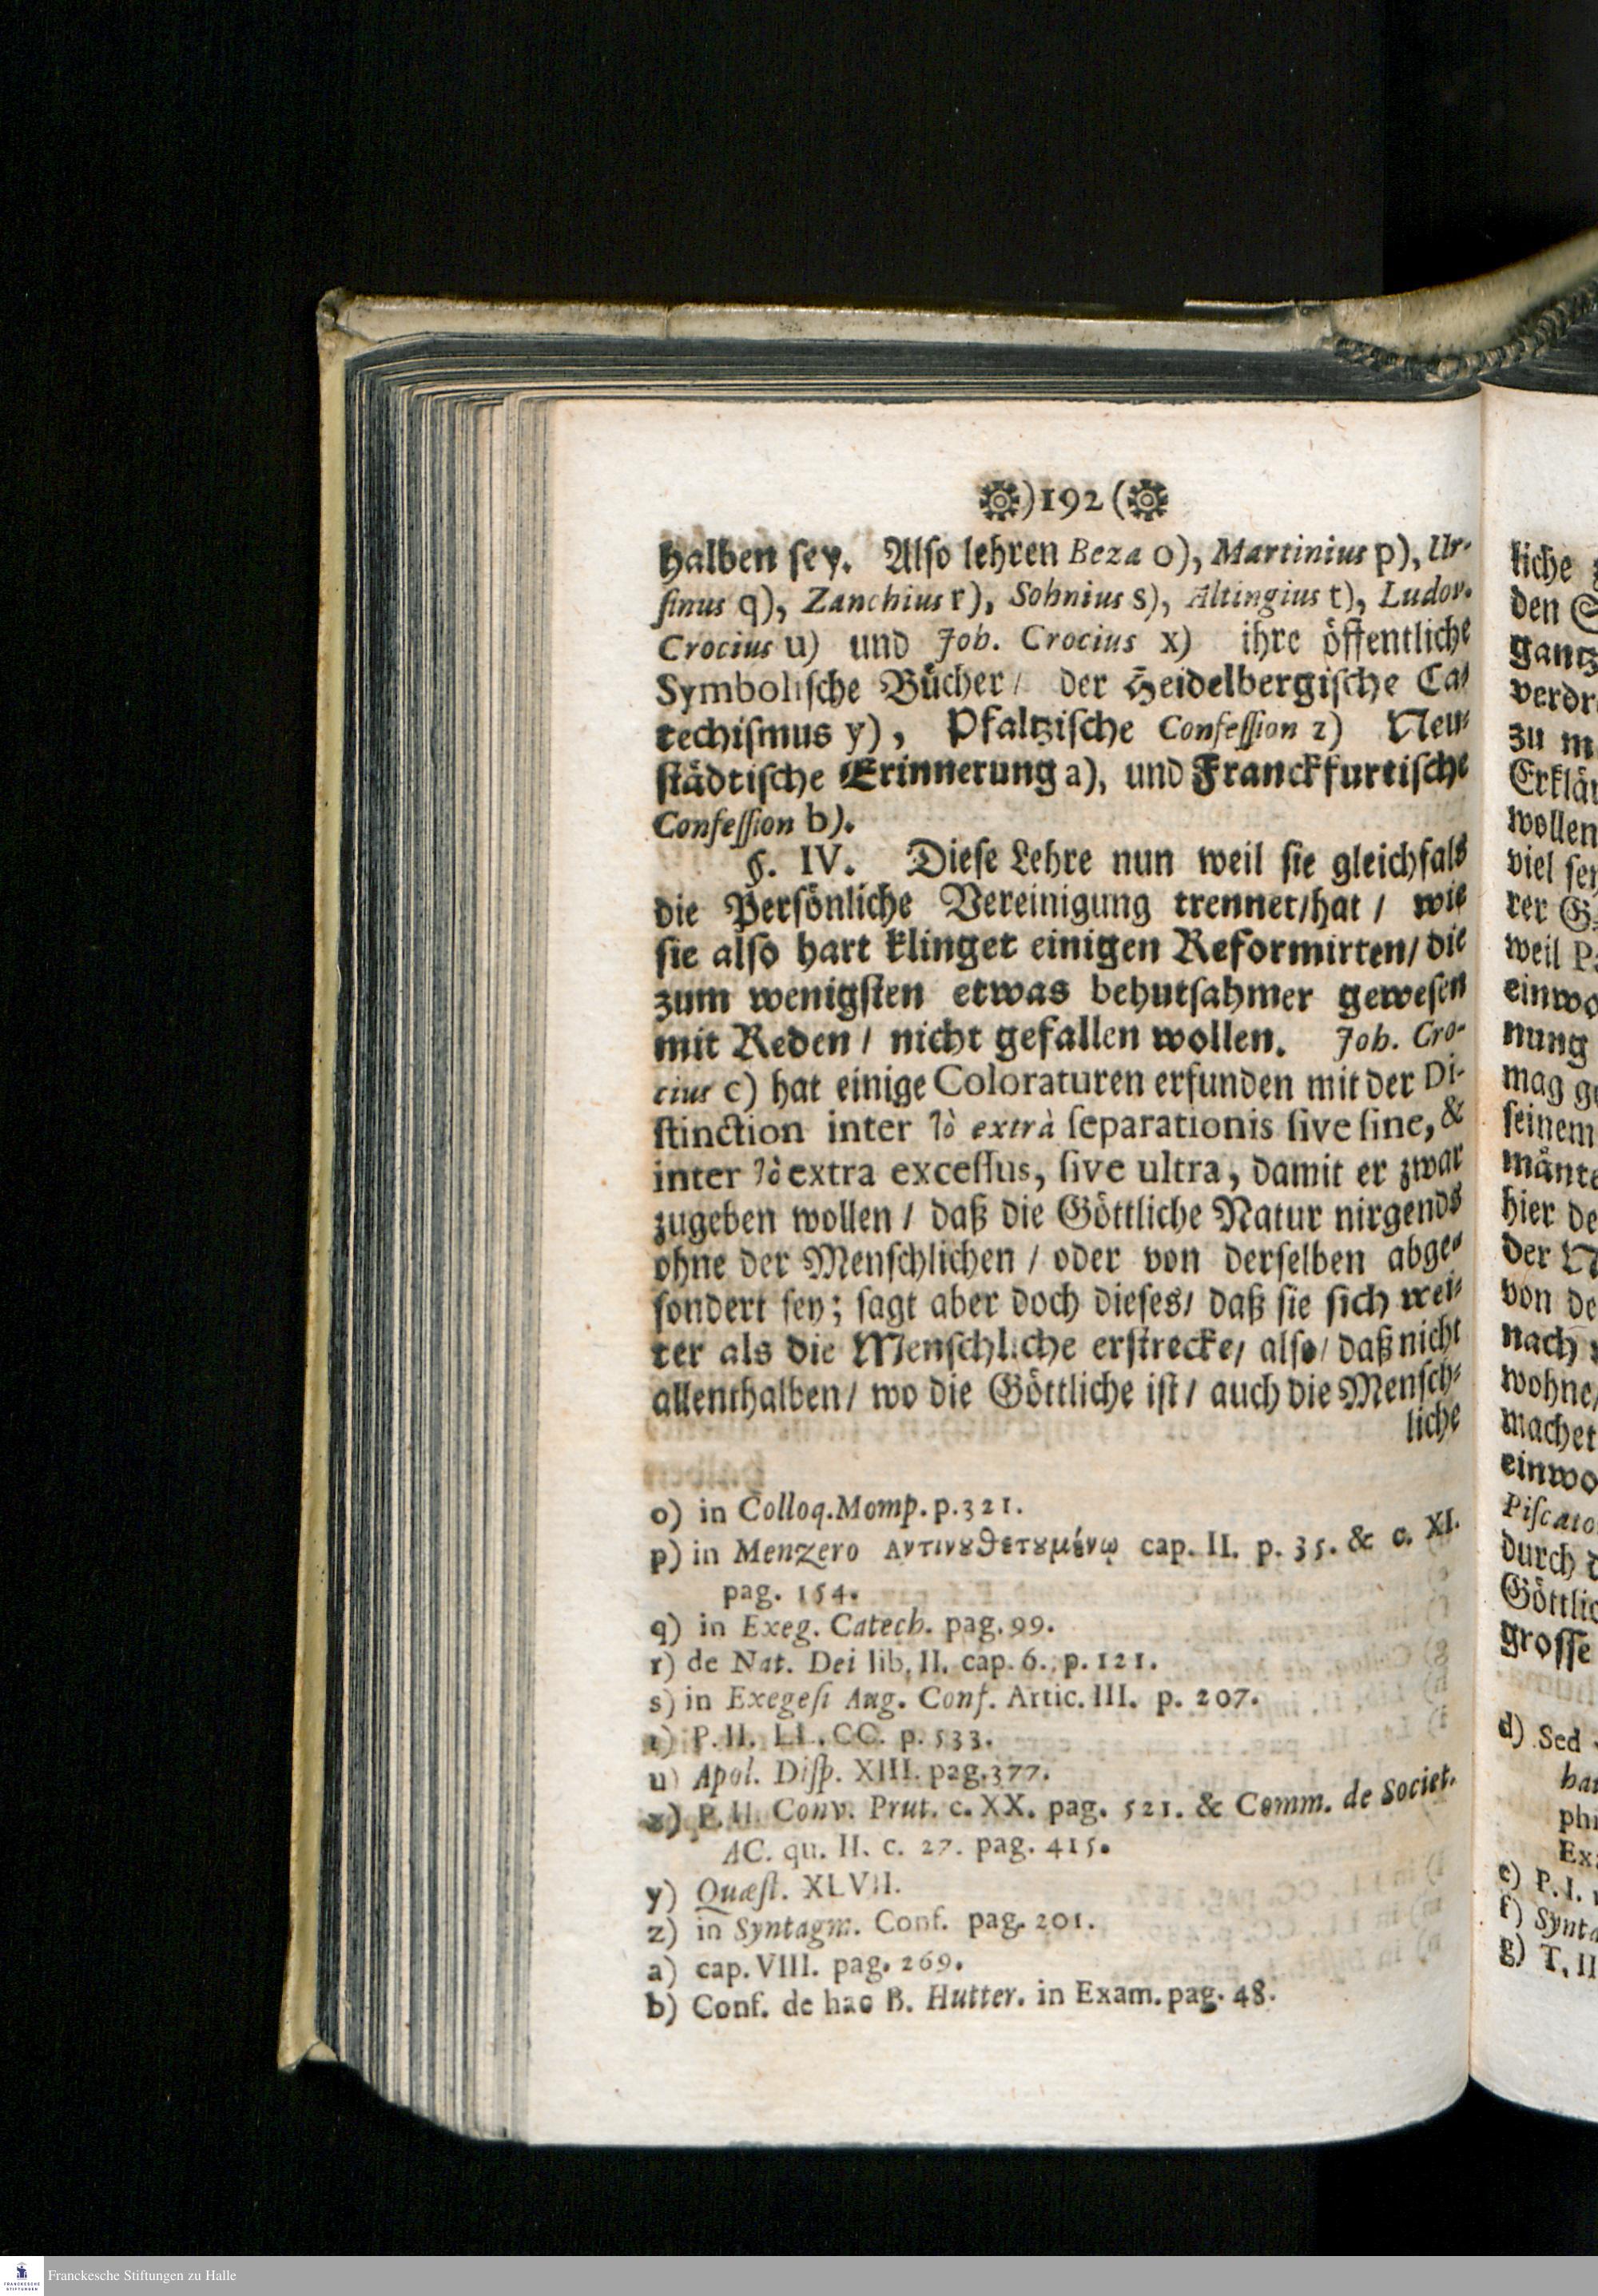 )192(
halben sey. Also lehren Beza o), Martinius p), Ur-
sinus q), Zanchius r), Sohnius s), Altingius t), Ludov.
Crocius u) und Joh. Crocius x) ihre öffentliche
Symbolische Bücher / der Heidelbergische Ca-
techismus y), Pfaltzische Confession z) Neu-
städtische Erinnerung a), und Franckfurtische
Confession b).
§. IV. Diese Lehre nun weil sie gleichfals
die Persönliche Vereinigung trennet/hat / wie
sie also hart klinget einigen Reformirten/ die
zum wenigsten etwas behutsahmer gewesen
mit Reden / nicht gefallen wollen. Joh. Cro-
cius c) hat einige Coloraturen erfunden mit der Di-
stinction inter τὸ extrà separationis sive sine, &
inter τὸ extra excessus, sive ultra, damit er zwar
zugeben wollen / daß die Göttliche Natur nirgends
ohne der Menschlichen / oder von derselben abge-
sondert sey; sagt aber doch dieses/ daß sie sich wei-
ter als die Menschliche erstrecke/ also/ daß nicht
allenthalben/ wo die Göttliche ist / auch die Mensch-
liche
o) in Colloq. Momp. p. 321.
p) in Menzero αντινȣθετȣμένῳ cap. II. p. 35. & c. XI.
pag. 154.
q) in Exeg. Catech. pag. 99.
r) de Nat. Dei lib. II. cap. 6. p. 121.
s) in Exegesi Aug. Conf. Artic. III. p. 207.
t) P. II. LL. CC. p. 533.
u) Apol. Disp. XIII. pag. 377.
x) P. II. Conv. Prut. c. XX. pag. 521. & Comm. de Societ.
AC. qu. II. c. 27. pag. 415.
y) Quæst. XLVII.
z) in Syntagm. Conf. pag. 201.
a) cap. VIII. pag. 269.
b) Conf. de hac B. Hutter. in Exam. pag. 48.
liche
den
gantz
verdr
zu m
Erklär
wollen
viel
rer G
weil
einwo
nung
mag
seinem
mänte
hier de
der
von de
nach
wohne/
machet
einwo
Piscato
durch
Göttlic
grosse
d) Sed
e) P. I.
f) Synta
g) T. II
Franckesche Stiftungen zu Halle
FRANCKESCHE
STIFTUNGEN